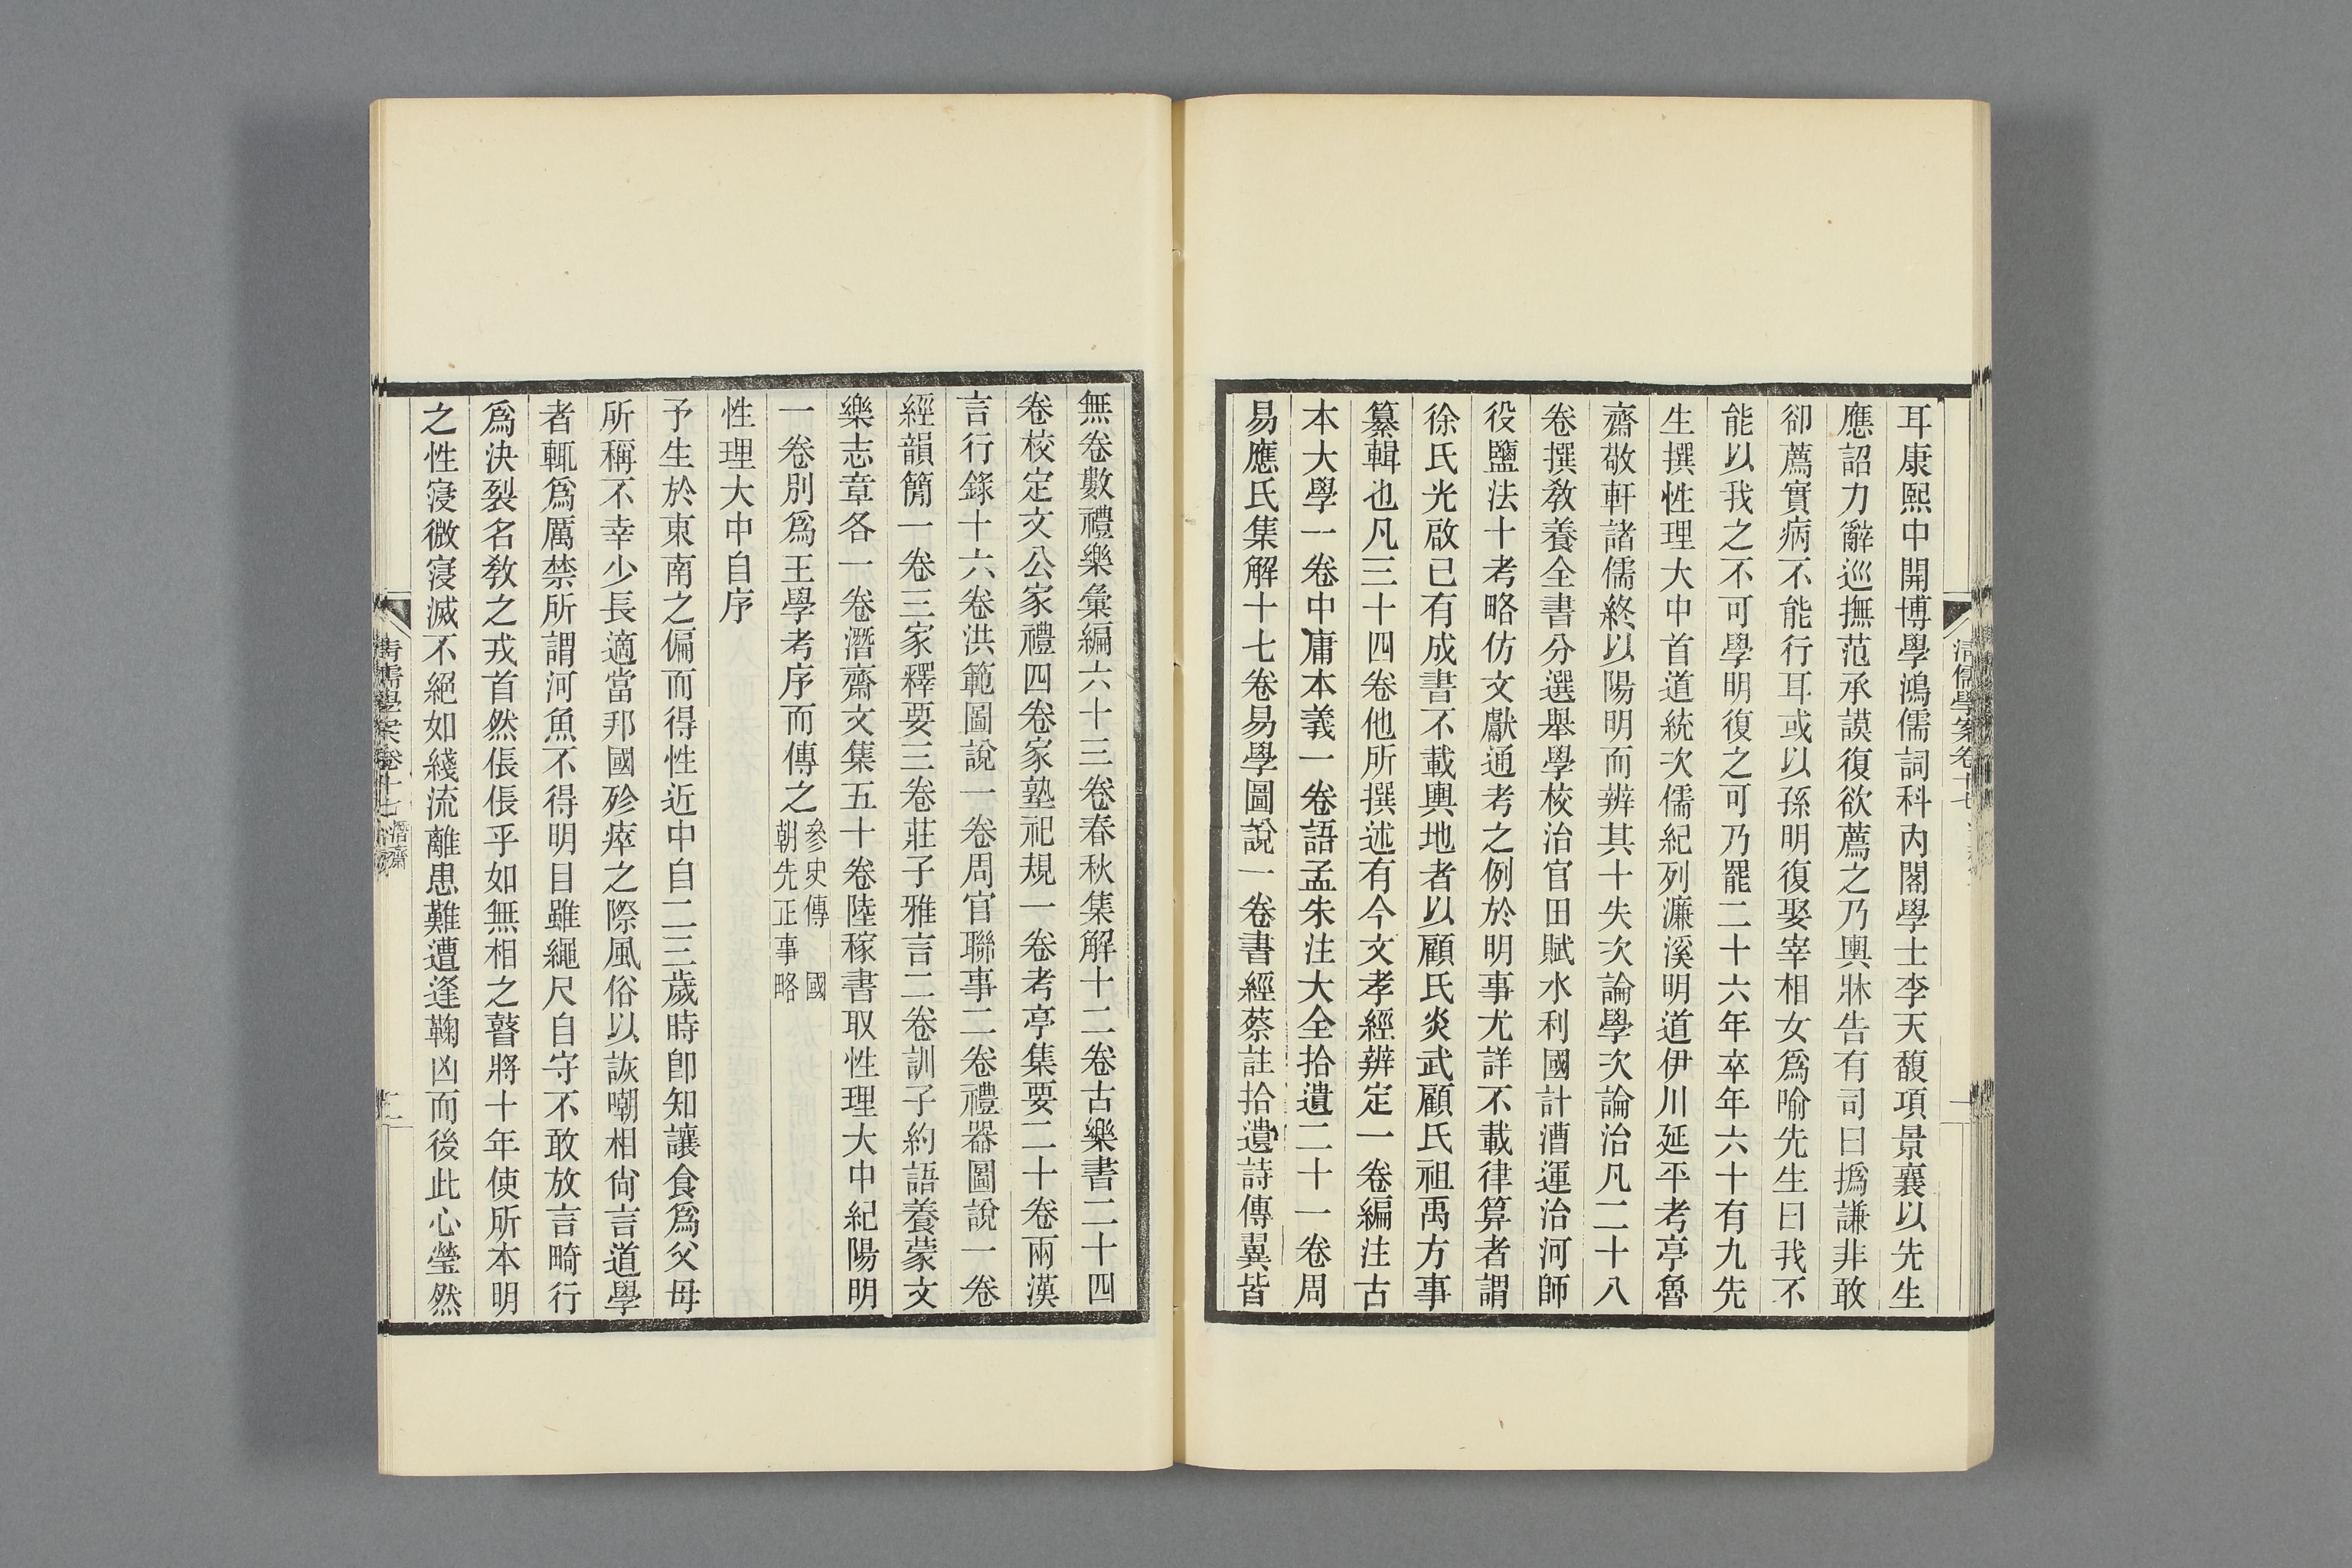 耳康熙中開博學鴻儒詞科內閣學士李天馥項景襄以先生
應詔力辭巡撫范承謨復欲薦之乃輿牀告有司曰撝謙非敢
卻薦實病不能行耳或以孫明復娶宰相女爲喻先生曰我不
能以我之不可學明復之可乃罷二十六年卒年六十有九先
生撰性理大中首道統次儒紀列濂溪明道伊川延平考亭魯
齋敬軒諸儒終以陽明而辨其十失次論學次論治凡二十八
卷撰教養全書分選舉學校治官田賦水利國計漕運治河師
役鹽法十考略仿文獻通考之例於明事尤詳不載律算者謂
徐氏光啟已有成書不載輿地者以顧氏炎武顧氏祖禹方事
纂輯也凡三十四卷他所撰述有今文孝經辨定一卷編注古
本大學一卷中庸本義一卷語孟朱注大全拾遺二十一卷周
易應氏集解十七卷易學圖說一卷書經蔡註拾遺詩傳翼皆
無卷數禮樂彙編六十三卷春秋集解十二卷古樂書二十四
卷校定文公家禮四卷家塾祀規一卷考亭集要二十卷兩漢
言行錄十六卷洪範圖說一卷周官聯事二卷禮器圖說一卷
經韻簡一卷三家釋要三卷莊子雅言二卷訓子約語養蒙文
樂志章各一卷潛齋文集五十卷陸稼書取性理大中紀陽明
一卷別爲王學考序而傳之參史傳 國
朝先正事略
性理大中自序
予生於東南之偏而得性近中自二三歲時卽知讓食爲父母
所稱不幸少長適當邦國殄瘁之際風俗以詼嘲相尙言道學
者輒爲厲禁所謂河魚不得明目雖繩尺自守不敢放言畸行
爲決裂名教之戎首然倀倀乎如無相之瞽將十年使所本明
之性寖微寖滅不絕如綫流離患難遭逢鞠凶而後此心瑩然
清儒學案卷十七 潛齋